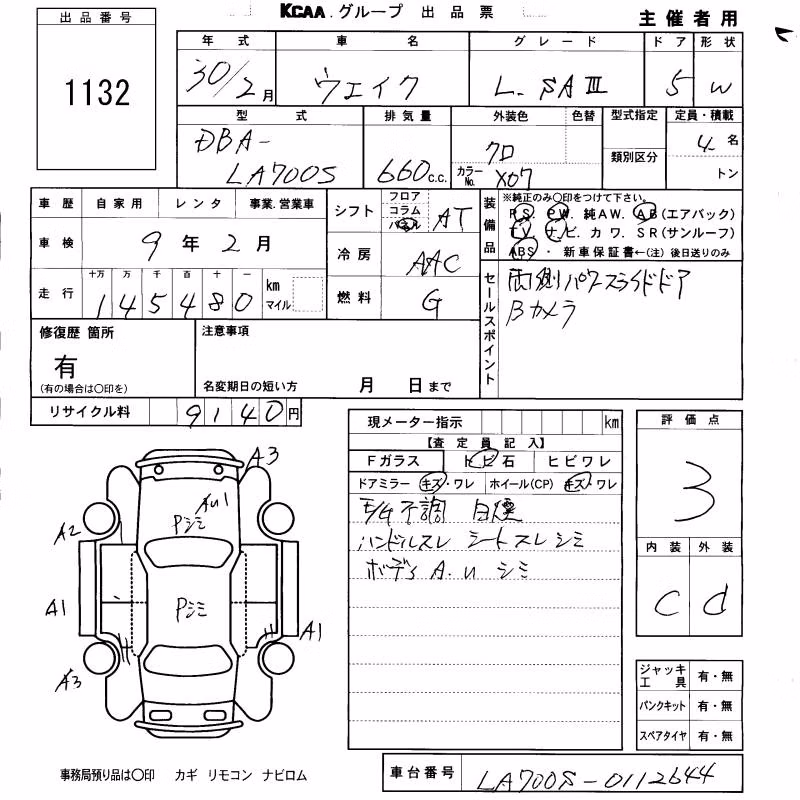 KCAA.グループ 出品票
主催者用
出品番号
1132
年式 車名 グレード ドア 形状
30/2月 ウェイク L.SAⅢ 5 W
型式 排気量 外装色 色替 型式指定 定員・積載
DBA-
LA700S 660c.c. クロ カラーNo. X07 類別区分 4名
トン
車歴 自家用 レンタ 事業.営業車
シフト フロア コラム パネル AT
装備品 ※純正のみ〇印をつけて下さい。
PS. PW. 純AW. AB(エアバック)
TV. ナビ. カワ. SR(サンルーフ)
ABS ・ 新車保証書←(注) 後日送りのみ
車検 9年2月
冷房 AAC
走行 十万 万 千 百 十 一
145480 km マイル
燃料 G
セールスポイント 両側パワースライドドア
Bカメラ
修復歴箇所 注意事項
有
(有の場合は〇印を) 名変期日の短い方 月 日まで
リサイクル料 9140円
現メーター指示 km
【査定員記入】
Fガラス トビ石 ヒビワレ
ドアミラー キズ・ワレ ホイール(CP) キズ・ワレ
E/G不調 白煙
ハンドルスレ シートスレシミ
ボディA.U シミ
評価点
3
内装 外装
C d
A3
AU1
Pシミ
A2
A1
Pシミ
A1
A3
ジャッキ工具 有・無
パンクキット 有・無
スペアタイヤ 有・無
事務局預り品は〇印 カギ リモコン ナビロム
車台番号 LA700S-0112644